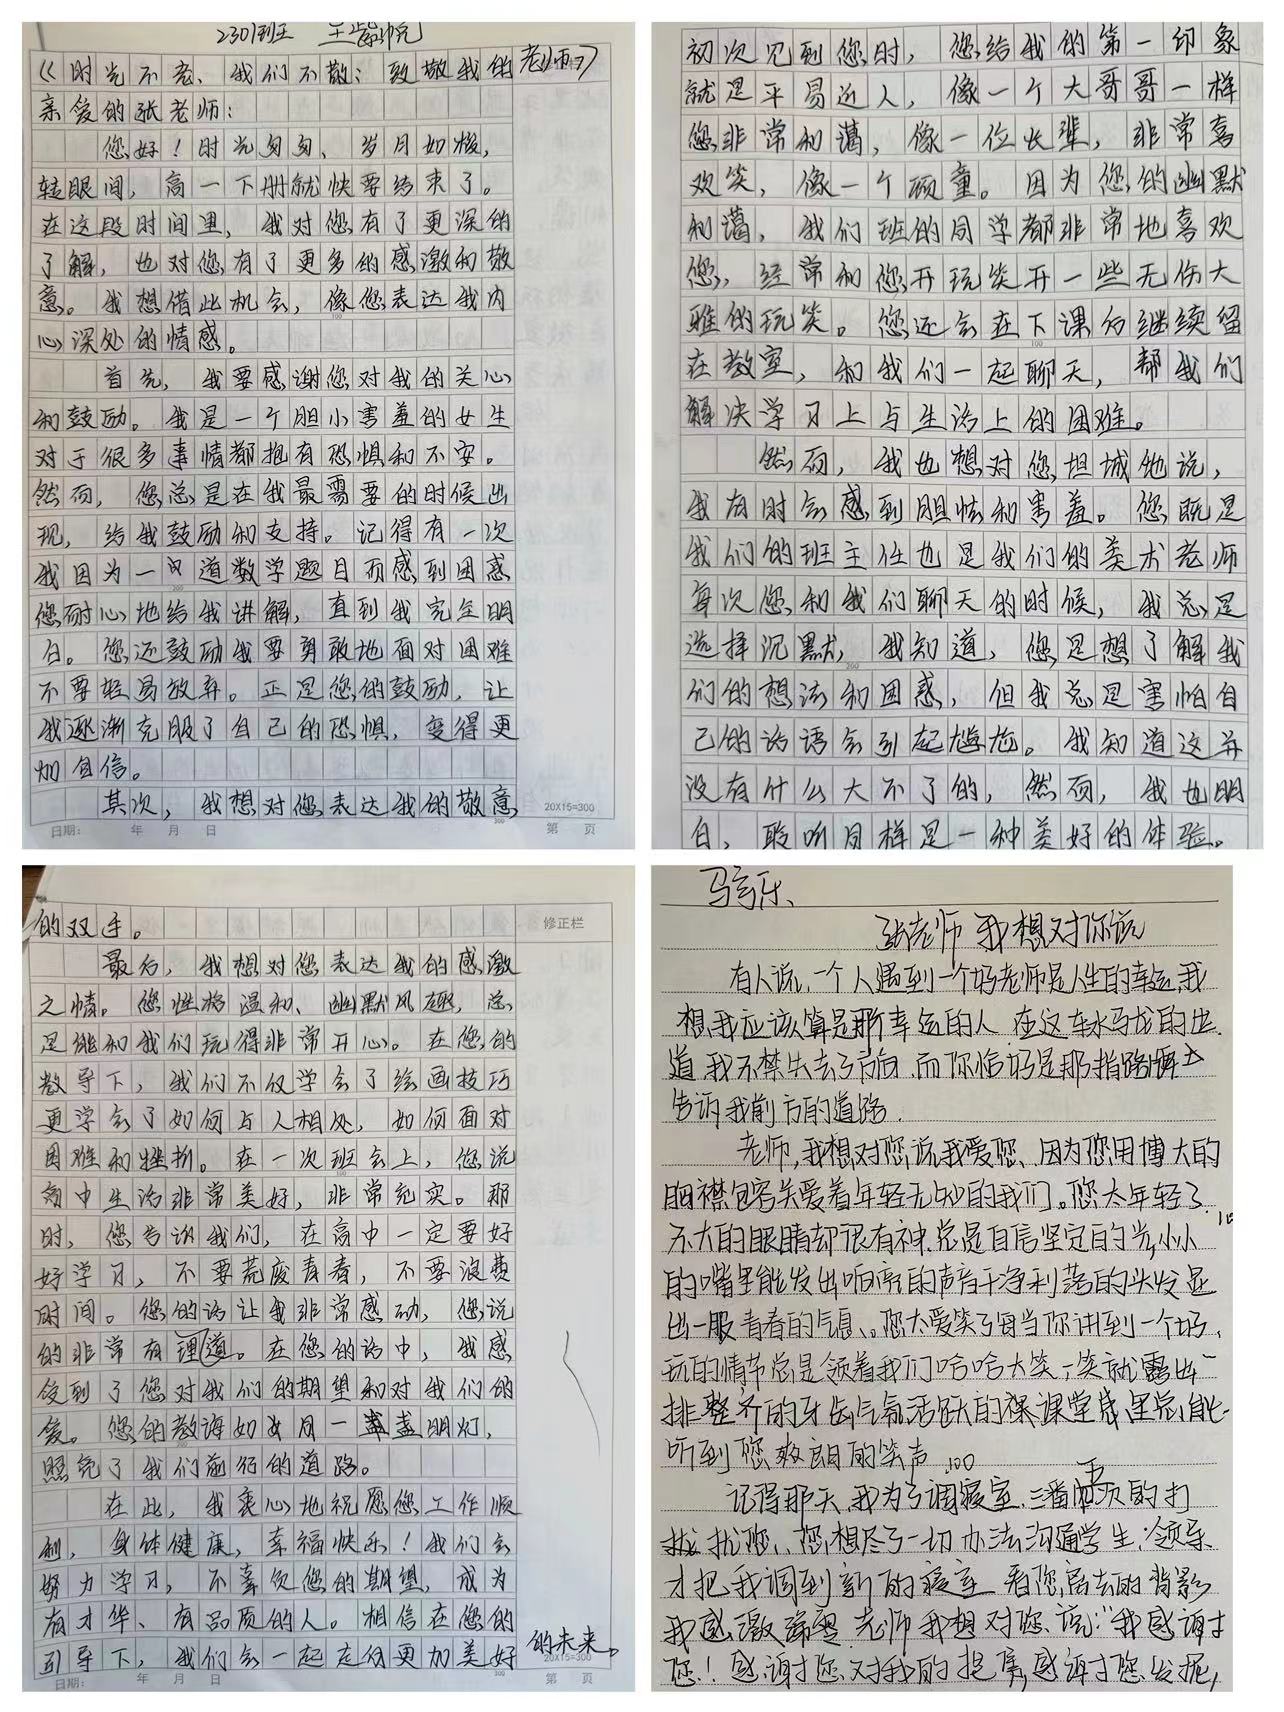 2301班 王
《时光不老、我们不散：致敬我的老师》
亲爱的张老师：
您好！时光匆匆、岁月如梭，
转眼间，高一下册就快要结束了。
在这段时间里，我对您有了更深的
了解，也对您有了更多的感激和敬
意。我想借此机会，像您表达我内
心深处的情感。
首先，我要感谢您对我的关心
和鼓励。我是一个胆小害羞的女生
对于很多事情都抱有恐惧和不安。
然而，您总是在我最需要的时候出
现，给我鼓励和支持。记得有一次
我因为一道数学题目而感到困惑
您耐心地给我讲解，直到我完全明
白。您还鼓励我要勇敢地面对困难
不要轻易放弃。正是您的鼓励，让
我逐渐克服了自己的恐惧，变得更
加自信。
其次，我想对您表达我的敬意，
20X15=300
日期： 年 月 日 第 页
初次见到您时，您给我的第一印象
就是平易近人，像一个大哥哥一样
您非常和蔼，像一位长辈，非常喜
欢笑，像一个顽童。因为您的幽默
和蔼，我们班的同学都非常地喜欢
您，经常和您开玩笑开一些无伤大
雅的玩笑。您还会在下课后继续留
在教室，和我们一起聊天，帮我们
解决学习上与生活上的困难。
然而，我也想对您坦城地说，
我有时会感到胆怯和害羞。您既是
我们的班主任也是我们的美术老师
每次您和我们聊天的时候，我总是
选择沉默，我知道，您是想了解我
们的想法和困惑，但我总是害怕自
己的话语会引起尴尬。我知道这并
没有什么大不了的，然而，我也明
白，聆听同样是一种美好的体验。
的双手。
修正栏
最后，我想对您表达我的感激
之情。您性格温和、幽默风趣，总
是能和我们玩得非常开心。在您的
教导下，我们不仅学会了绘画技巧
更学会了如何与人相处，如何面对
困难和挫折。在一次班会上，您说
高中生活非常美好，非常充实。那
时，您告诉我们，在高中一定要好
好学习，不要荒废青春，不要浪费
时间。您的话让我非常感动，您说
的非常有理道。在您的话中，我感
受到了您对我们的期望和对我们的
爱。您的教诲如一盏明灯，
照亮了我们前行的道路。
在此，我衷心地祝愿您工作顺
利，身体健康，幸福快乐！我们会
努力学习，不辜负您的期望，成为
有才华、有品质的人。相信在您的
引导下，我们会一起走向更加美好的未来。
20X15=300
日期： 年 月 日 第 页
张老师 我想对你说
有人说，一个人遇到一个好老师是人生的幸运，我
想我应该算是那幸运的人 在这车水马龙的世
道 我不禁失去了方向，而你恰好是那指路牌
告诉我前方的道路.
老师，我想对您说我爱您、因为您用博大的
胸襟包容关爱着年轻无知的我们。您太年轻了.
不大的眼睛却很有神.总是自信坚定的光，小小
的嘴里能发出响亮的声音干净利落的头发显
出一股青春的气息、。您太爱笑了每当你讲到一个好
玩的情节总是领着我们哈哈大笑，一笑就露出一
排整齐的牙齿气氛活跃的课堂里总能
听到您爽朗的笑声.
记得那天，我为了调寝室、三番五次的打
扰您、您想尽了一切办法沟通学生，领导
才把我调到新的寝室 看您离去的背影
我感激 老师我想对您说："我感谢
您！感谢您对我的 ，感谢您发掘，